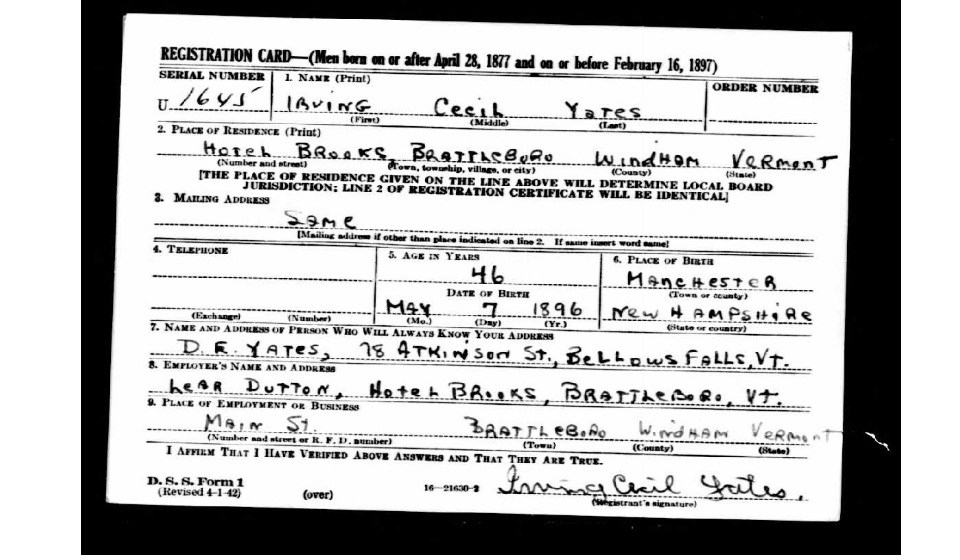 REGISTRATION CARD—(Men born on or after April 28, 1877 and on or before February 16, 1897)
SERIAL NUMBER 1. NAME (Print) ORDER NUMBER
U 1645 IRVING Cecil YATES
(First) (Middle) (Last)
2. PLACE OF RESIDENCE (Print)
HOTEL BROOKS, BRATTLEBORO WINDHAM VERMONT
(Number and street) (Town, township, village, or city) (County) (State)
[THE PLACE OF RESIDENCE GIVEN ON THE LINE ABOVE WILL DETERMINE LOCAL BOARD
JURISDICTION; LINE 2 OF REGISTRATION CERTIFICATE WILL BE IDENTICAL]
3. MAILING ADDRESS
Same
[Mailing address if other than place indicated on line 2. If same insert word same]
4. TELEPHONE 5. AGE IN YEARS 6. PLACE OF BIRTH
46 MANCHESTER
DATE OF BIRTH (Town or county)
MAY 7 1896 NEW HAMPSHIRE
(Exchange) (Number) (Mo.) (Day) (Yr.) (State or country)
7. NAME AND ADDRESS OF PERSON WHO WILL ALWAYS KNOW YOUR ADDRESS
D. E. YATES, 78 ATKINSON ST., BELLOWS FALLS, VT.
8. EMPLOYER'S NAME AND ADDRESS
LEAR DUTTON, HOTEL BROOKS, BRATTLEBORO, VT.
9. PLACE OF EMPLOYMENT OR BUSINESS
MAIN ST. BRATTLEBORO WINDHAM VERMONT
(Number and street or R. F. D. number) (Town) (County) (State)
I AFFIRM THAT I HAVE VERIFIED ABOVE ANSWERS AND THAT THEY ARE TRUE.
D. S. S. Form 1
(Revised 4-1-42) (over) 16—21630-2 Irving Cecil Yates.
(Registrant's signature)